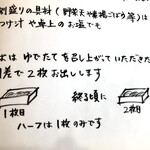 別盛りの具材(野菜天や素揚ごぼう等)は
つけ汁や卓上のお塩でも
はゆでたてを召し上がっていただき
差で2枚お出しします
終る頃に
1枚目
2枚目
ハーフは1枚のみです